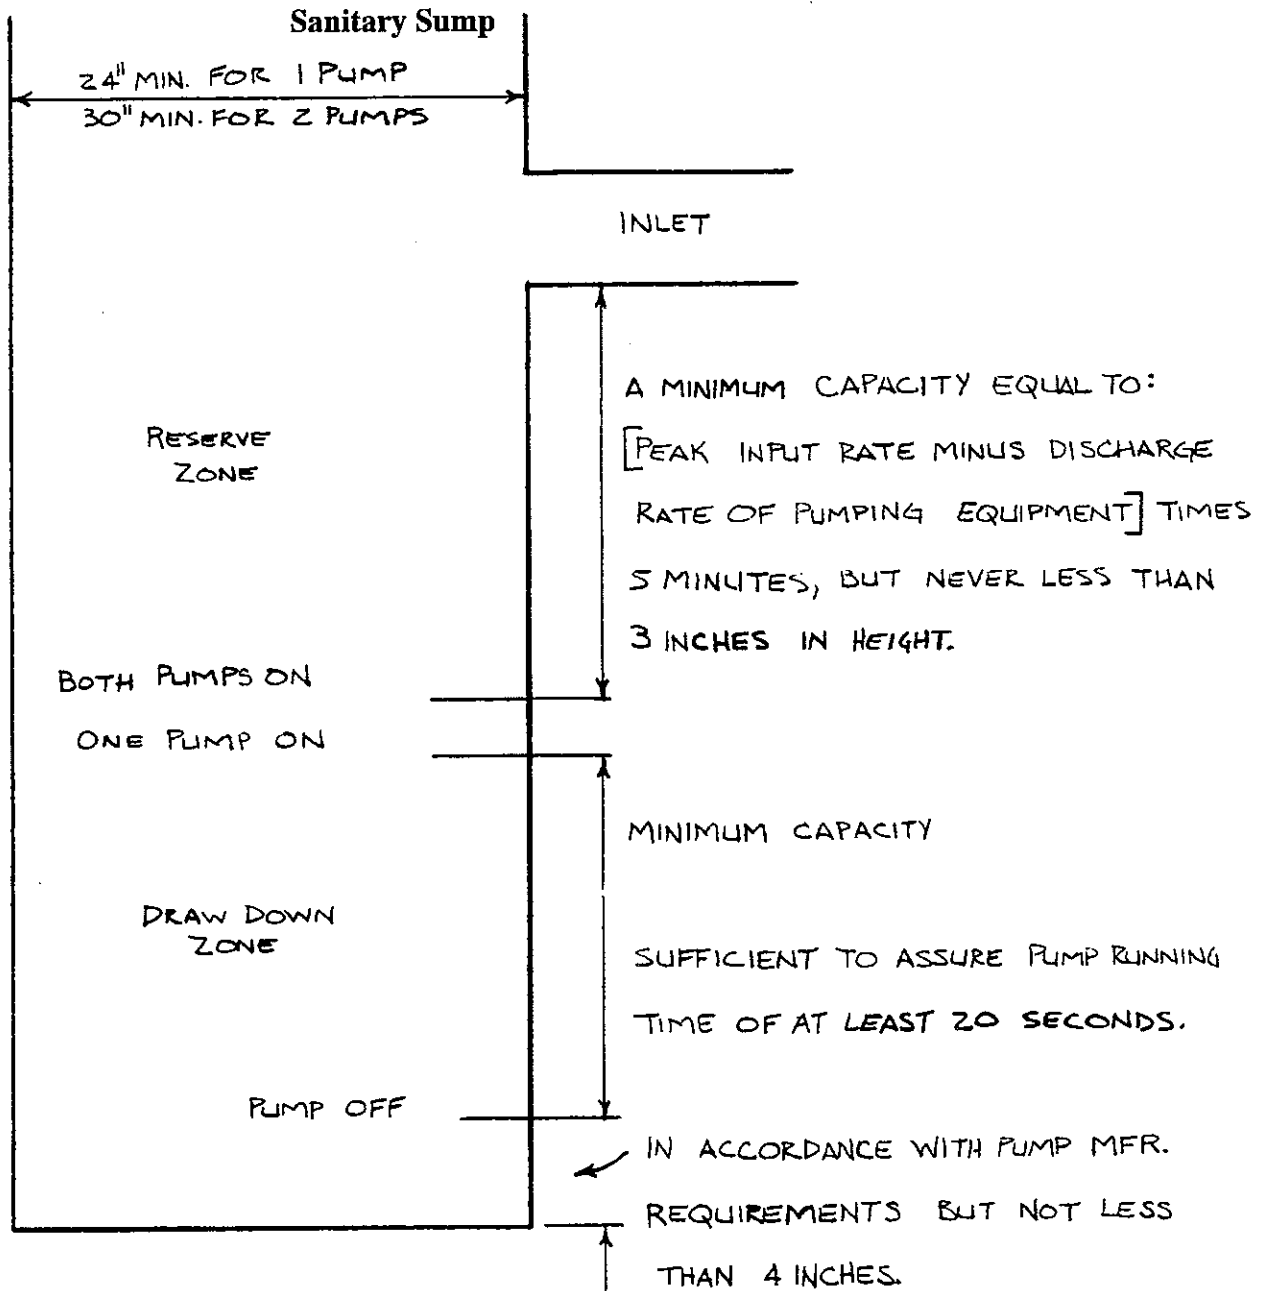 Sanitary Sump
24" MIN. FOR 1 PUMP
30" MIN. FOR 2 PUMPS
INLET
A MINIMUM CAPACITY EQUAL TO:
[PEAK INPUT RATE MINUS DISCHARGE
RATE OF PUMPING EQUIPMENT] TIMES
5 MINUTES, BUT NEVER LESS THAN
3 INCHES IN HEIGHT.
RESERVE
ZONE
BOTH PUMPS ON
ONE PUMP ON
MINIMUM CAPACITY
SUFFICIENT TO ASSURE PUMP RUNNING
TIME OF AT LEAST 20 SECONDS.
DRAW DOWN
ZONE
PUMP OFF
IN ACCORDANCE WITH PUMP MFR.
REQUIREMENTS BUT NOT LESS
THAN 4 INCHES.